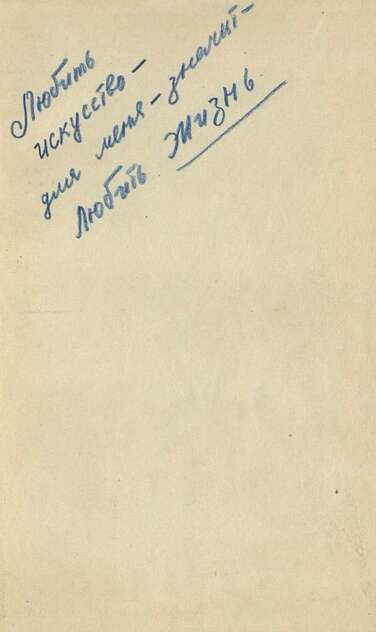 Любить
искусство -
для меня - значит -
Любить жизнь